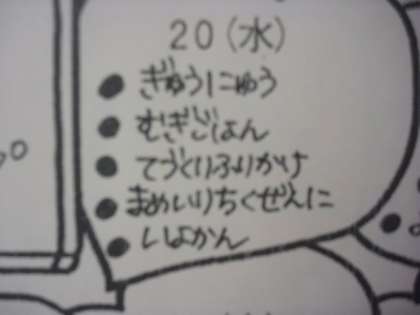 20(水)
● ぎゅうにゅう
● むぎごはん
● てづくりふりかけ
● まめいりちくぜんに
● いよかん